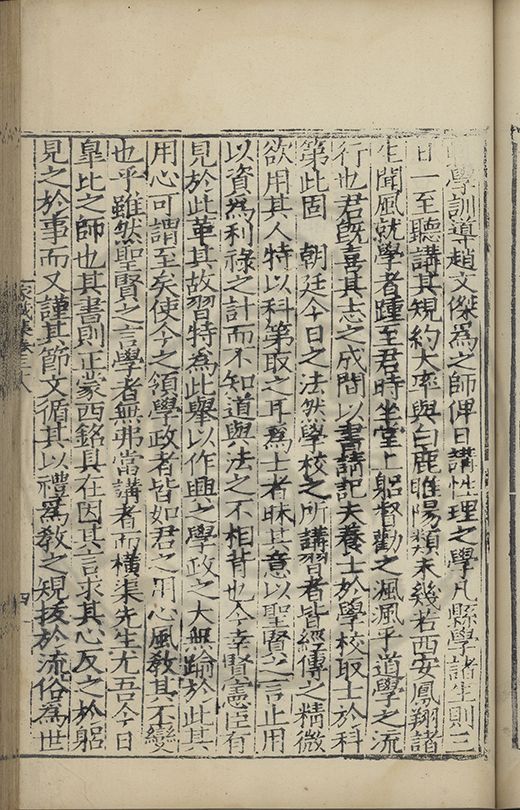 學訓導趙文傑爲之師俾日講性理之學凡縣學諸生則三
日一至聽講其規約大率與白鹿睢陽類未幾若西安鳳翔諸
生聞風就學者踵至君時坐堂上躬督勸之渢渢乎道學之流
行也君旣喜其志之成間以書請記夫養士於學校取士於科
第此固 朝廷今日之法然學校之所講習者皆經傳之精微
欲用其人特以科第取之耳爲士者昧其意以聖賢之言止用
以資爲利祿之計而不知道與法之不相背也今幸賢憲臣有
見於此革其故習特為此舉以作興之學政之大無踰於此其
用心可謂至矣使今之領學政者皆如君之用心風敎其不變
也乎雖然聖賢之言學者無弗當講者而橫渠先生尤吾今日
臯比之師也其書則正蒙西銘具在因其言求其心反之於躬
見之於事而又謹其節文循其以禮爲敎之規拔於流俗爲世
家藏集卷三八
四